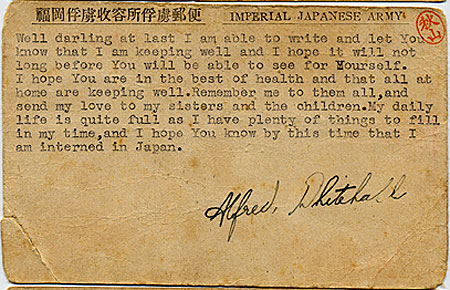 福岡俘虜收容所俘虜郵便 IMPERIAL JAPANESE ARMY
秋山
Well darling at last I am able to write and let You
know that I am keeping well and I hope it will not
long before You will be able to see for Yourself.
I hope You are in the best of health and that all at
home are keeping well.Remember me to them all,and
send my love to my sisters and the children.My daily
life is quite full as I have plenty of things to fill
in my time,and I hope You know by this time that I
am interned in Japan.
Alfred. Whitehall